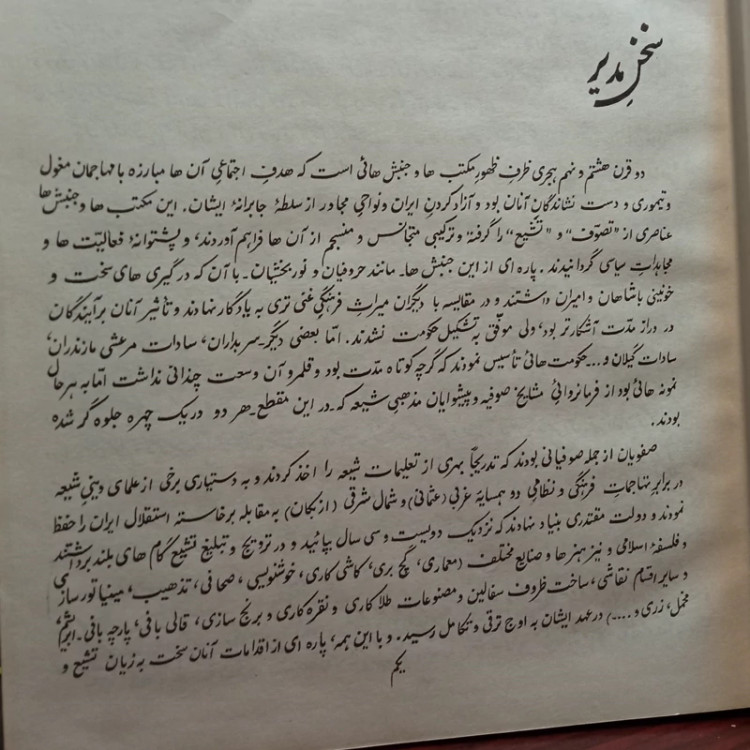 سخن مدیر
دو قرن هشتم و نهم هجری ظرف ظهور مکتب ها و جنبش هائی است که هدف اجتماعی آن ها مبارزه با مهاجمان مغول
و تیموری و دست نشاندگان آنان بود و آزاد کردن ایران و نواحی مجاور از سلطهٔ جابرانهٔ ایشان. این مکتب ها و جنبش ها
عناصری از "تصوّف" و "تشیّع" را گرفته و ترکیبی متجانس و منسجم از آن ها فراهم آوردند، و پشتوانهٔ فعالیّت ها و
مجاهدات سیاسی گردانیدند. پاره ای از این جنبش ها_ مانند حروفیان و نوربخشیان_ با آن که درگیری های سخت و
خونینی با شاهان و امیران داشتند و در مقایسه با دیگران میراث فرهنگی غنی تری به یادگار نهادند و تأثیر آنان بر آیندگان
در دراز مدّت آشکارتر بود، ولی موفّق به تشکیل حکومت نشدند. امّا بعضی دیگر_ سربداران، سادات مرعشی مازندران،
سادات گیلان و... حکومت هائی تأسیس نمودند که گرچه کوتاه مدّت بود و قلمرو آن وسعت چندانی نداشت امّا به هر حال
نمونه هائی بود از فرمانروائی مشایخ صوفیه و پیشوایان مذهبی شیعه که_ در این مقطع_ هر دو در یک چهره جلوه گر شده
بودند.
صفویان از جمله صوفیانی بودند که تدریجاً بهری از تعلیمات شیعه را اخذ کردند و به دستیاری برخی از علمای دینی شیعه
در برابر تهاجمات فرهنگی و نظامی دو همسایهٔ غربی (عثمانی) و شمال شرقی (ازبکان) به مقابله برخاسته استقلال ایران را حفظ
نمودند و دولت مقتدری بنیاد نهادند که نزدیک دویست و سی سال بپائید و در ترویج و تبلیغ تشیّع گام های بلند برداشتند
و فلسفهٔ اسلامی و نیز هنرها و صنایع مختلف (معماری، گچ بری، کاشی کاری، خوشنویسی، صحافی، تذهیب، مینیاتور سازی
و سایر اقسام نقاشی، ساخت ظروف سفالین و مصنوعات طلا کاری و نقره کاری و برنج سازی، قالی بافی، پارچه بافی_ ابریشم،
مخمل، زری و ....) در عهد ایشان به اوج ترقی و تکامل رسید. و با این همه، پاره ای از اقدامات آنان سخت به زیان تشیّع و
یکم